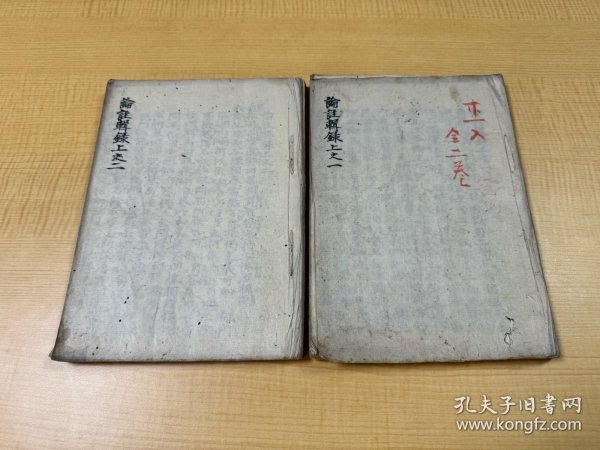 論註輯録上之一
全二巻
論註輯録上之二
孔夫子旧书网
www.kongfz.com